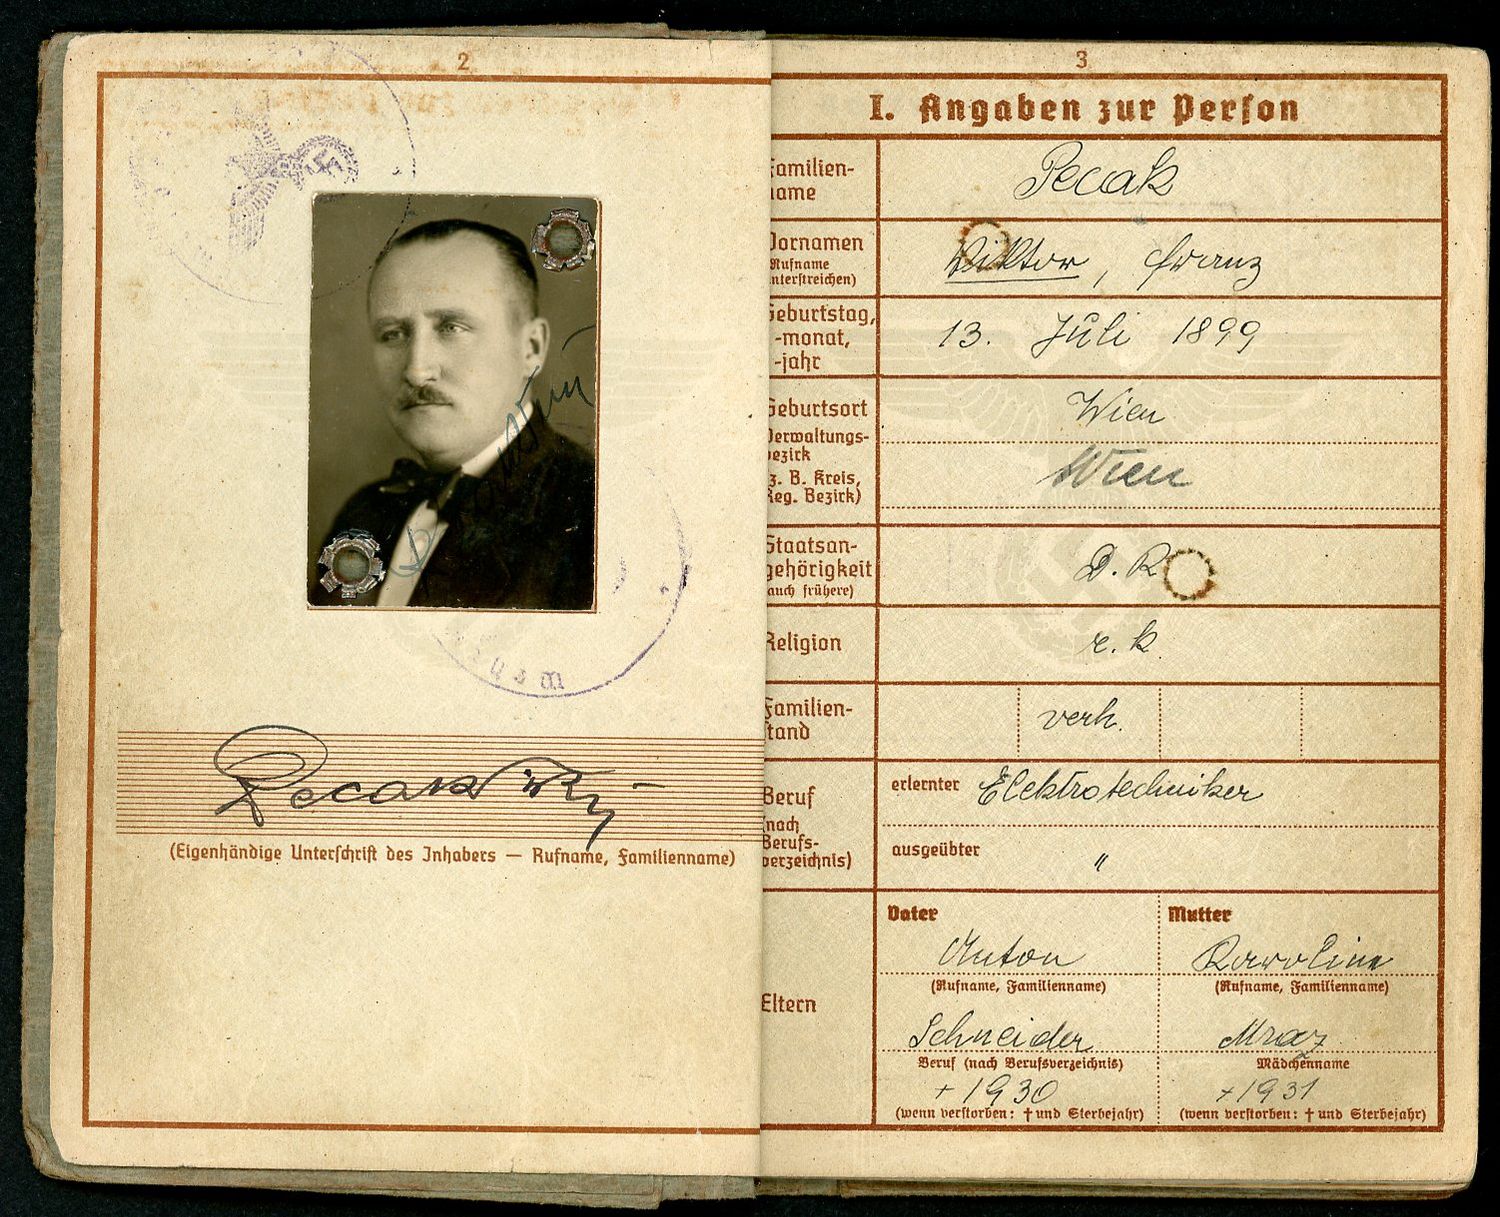 2
Pecak Vikt
(Eigenhändige Unterschrift des Inhabers — Rufname, Familienname)
3
I. Angaben zur Person
familien-
name
Pecak
Vornamen
(Rufname
unterstreichen)
Viktor, Franz
Geburtstag,
-monat,
-jahr
13. Juli 1899
Geburtsort
Verwaltungs-
bezirk
(z. B. Kreis,
Reg. Bezirk)
Wien
Wien
Staatsan-
gehörigkeit
(auch frühere)
D. R
Religion
r. k.
Familien-
stand
verh.
Beruf
(nach
Berufs-
verzeichnis)
erlernter Elektrotechniker
ausgeübter "
Eltern
Vater
Anton
(Rufname, Familienname)
Schneider
Beruf (nach Berufsverzeichnis)
+ 1930
(wenn verstorben: † und Sterbejahr)
Mutter
Karoline
(Rufname, Familienname)
Mraz
Mädchenname
+ 1931
(wenn verstorben: † und Sterbejahr)